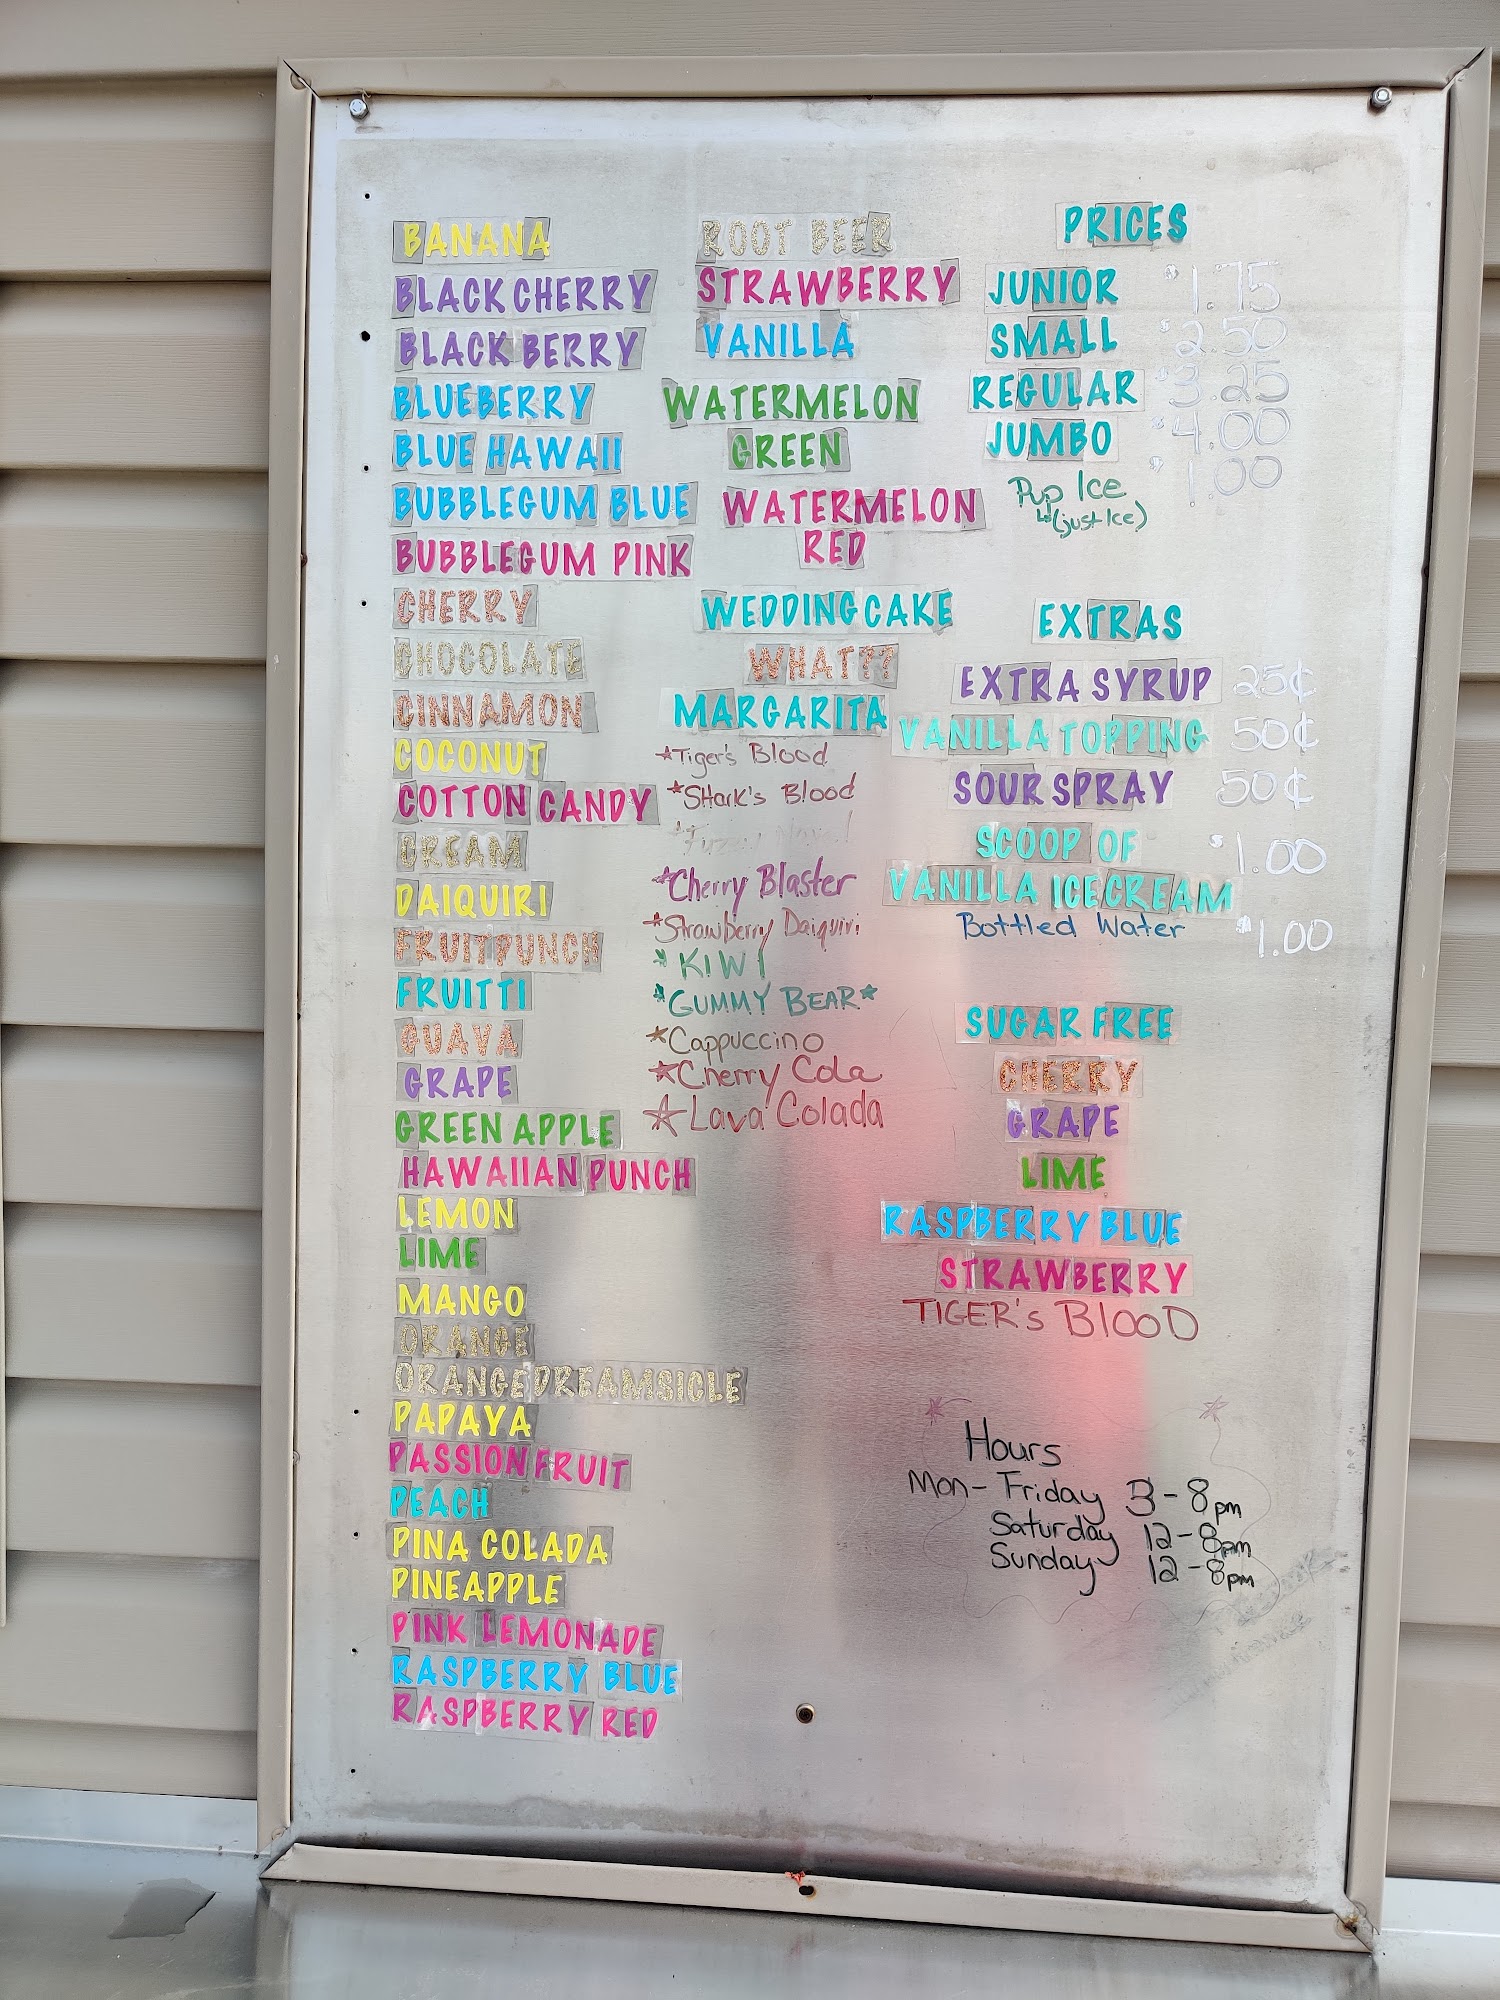 BANANA
BLACK CHERRY
BLACK BERRY
BLUEBERRY
BLUE HAWAII
BUBBLEGUM BLUE
BUBBLEGUM PINK
CHERRY
CHOCOLATE
CINNAMON
COCONUT
COTTON CANDY
CREAM
DAIQUIRI
FRUIT PUNCH
FRUITTI
GUAVA
GRAPE
GREEN APPLE
HAWAIIAN PUNCH
LEMON
LIME
MANGO
ORANGE
ORANGE DREAMSICLE
PAPAYA
PASSION FRUIT
PEACH
PINA COLADA
PINEAPPLE
PINK LEMONADE
RASPBERRY BLUE
RASPBERRY RED
ROOT BEER
STRAWBERRY
VANILLA
WATERMELON
GREEN
WATERMELON
RED
WEDDING CAKE
WHAT??
MARGARITA
*Tiger's Blood
*SHark's Blood
*Cherry Blaster
*Strawberry Daiquiri
*KIWI
*GUMMY BEAR*
*Cappuccino
*Cherry Cola
*Lava Colada
PRICES
JUNIOR $1.75
SMALL $2.50
REGULAR $3.25
JUMBO $4.00
Pup Ice $1.00
(just Ice)
EXTRAS
EXTRA SYRUP 25¢
VANILLA TOPPING 50¢
SOUR SPRAY 50¢
SCOOP OF $1.00
VANILLA ICE CREAM
Bottled Water $1.00
SUGAR FREE
CHERRY
GRAPE
LIME
RASPBERRY BLUE
STRAWBERRY
TIGER'S BLOOD
Hours
Mon-Friday 3-8pm
Saturday 12-8pm
Sunday 12-8pm